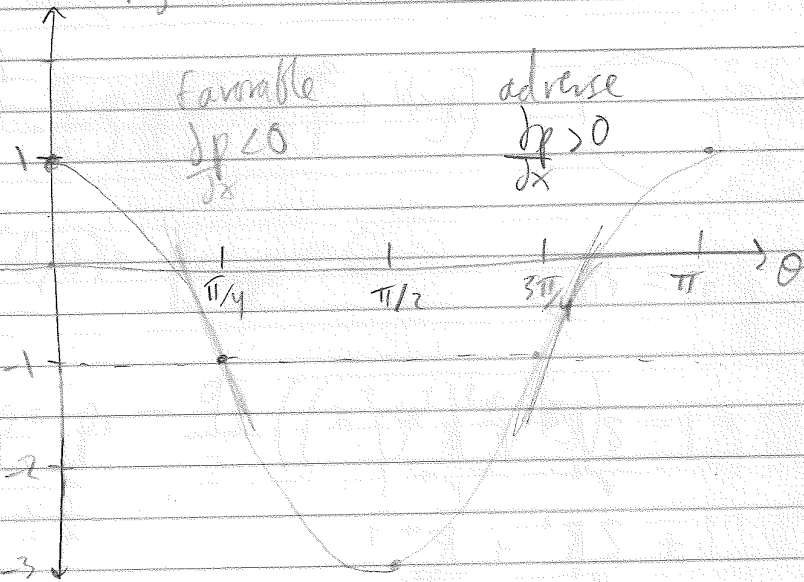 favorable adverse
∂p/∂x < 0 ∂p/∂x > 0
1
π/4 π/2 3π/4 π θ
-1
-2
-3